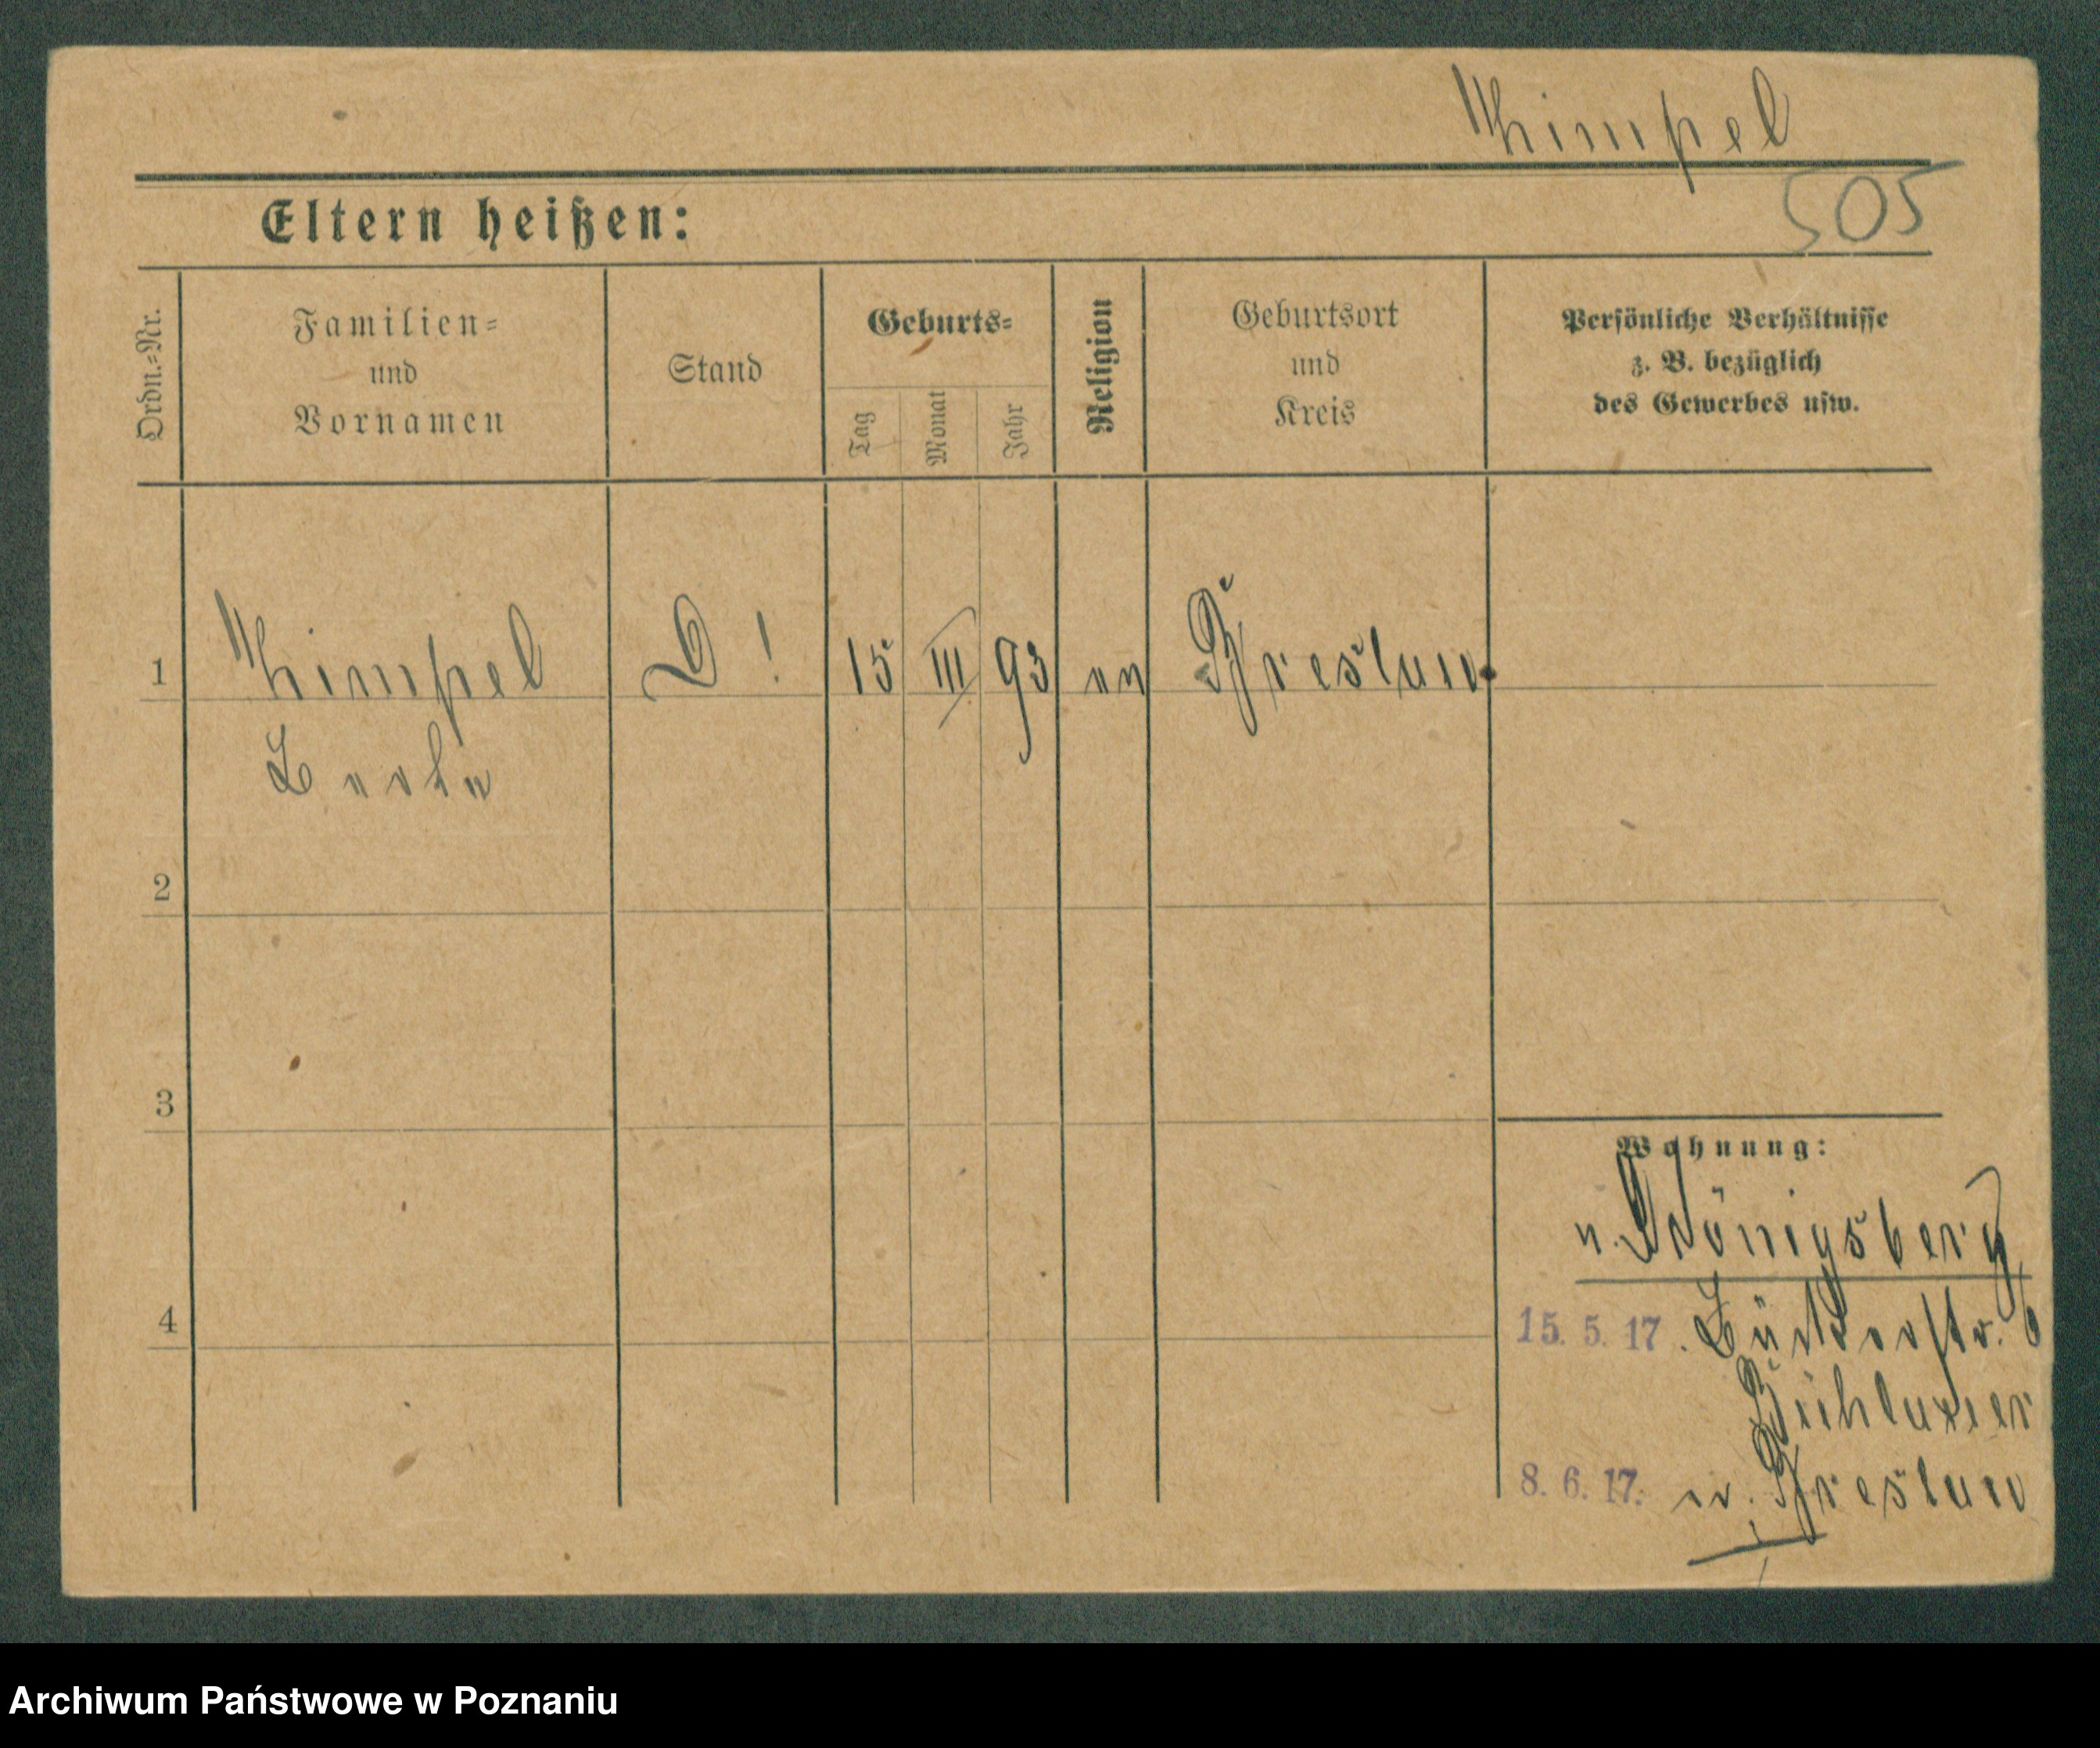 Khimpel
505
Eltern heißen:
Ordn.=Nr.
Familien=
und
Vornamen
Stand
Geburts=
Tag
Monat
Jahr
Religion
Geburtsort
und
Kreis
Persönliche Verhältnisse
z. B. bezüglich
des Gewerbes usw.
1 15 III 93 ev Breslau
2
3
4
Wohnung:
v. Königsberg
15. 5. 17. 6
8. 6. 17. n. Breslau
Archiwum Państwowe w Poznaniu